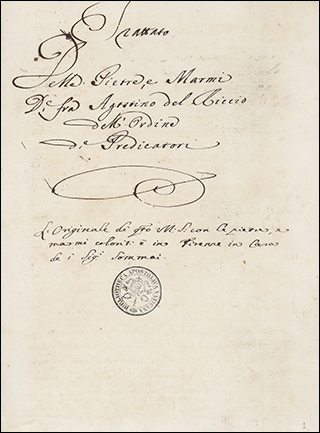 Trattato
Delle Pietre, e Marmi
Di fra Agostino del Riccio
dell'Ordine
de Predicatori
L'Originale di q̃to M.S. con le pietre, e
marmi coloriti è in Firenze in Casa
de i Sig.ri Sommai.
BIBLIOTECA APOSTOLICA VATICANA
1